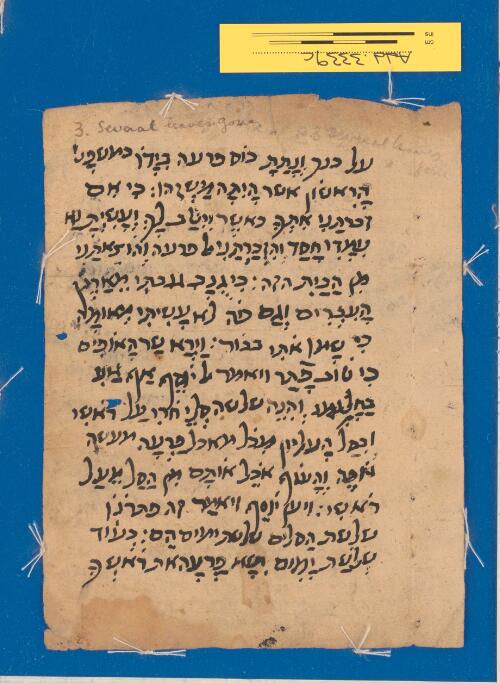 3. Several leaves gone
על כנך וְנָתַתָ כוס פרעה בְיָדוֹ כמשפט
הָרִאשוֹן אשר הָיִתָה מַשְקהו: כִי אם
זכרתַנִי אִתְךָ כאשר ייטַב לַךְ וְעָשִיתָ נא
עִמָדִי חָסֶד וְהִזְכַרְתַנִי ל פרעה והוצאתני
מִן הַבַיִת הזה: כִי גֻנֹב גנבתי מֵאֶרֶץ
הָעִבְרִים וְגַם פה לא עָשִיתִי מאומָה
כִי שָמו אֹתִי בבור: וַיַרְא שַר הָאופים
כִי טוֹב פָתַר ויאמר ל יוֹסֵף אַף אני
בַחֲלֹמִי וְהִנֵה שלשה סַלֵי חֹרִי עַל ראשי
ובסַל הָעליון מִכֹל מאכל פַרְעֹה מעשה
אֹפֶה וְהָעוֹף אֹכֵל אוֹתָם מִן הַסַל מֵעַל
רֹאשִי: ויען יוֹסֵף ויאמר זה פתרוֹנוֹ
שלשת הַסַלים שלשת ימים הֵם: בְעוֹד
שְלֹשֶת יָמִים יִשָא פַרְעֹה את רֹאשְךָ
cm
ins
Add. 3339c